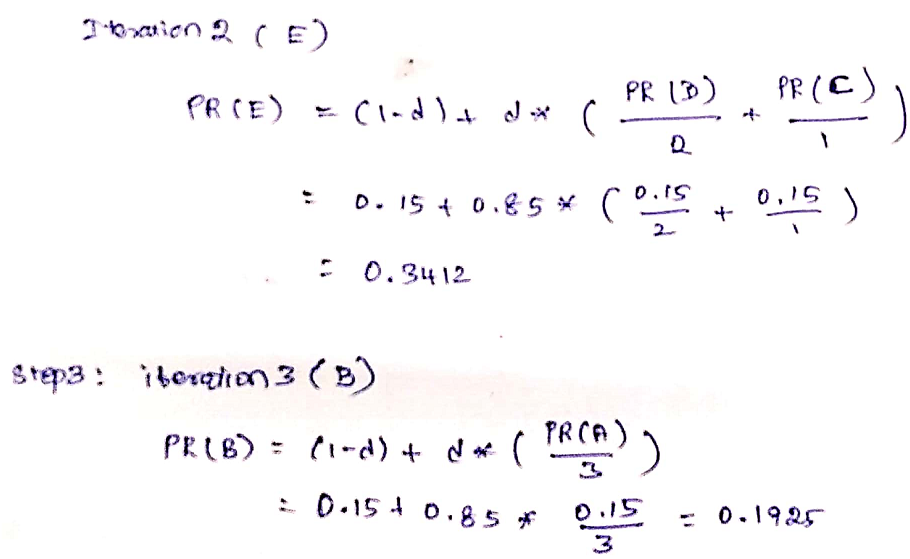 Iteration 2 (E)
PR(E) = (1-d) + d* ( PR(D)/2 + PR(C)/1 )
= 0.15 + 0.85 * ( 0.15/2 + 0.15/1 )
= 0.3412
Step3: iteration 3 (B)
PR(B) = (1-d) + d* ( PR(A)/3 )
= 0.15 + 0.85 * 0.15/3 = 0.1925